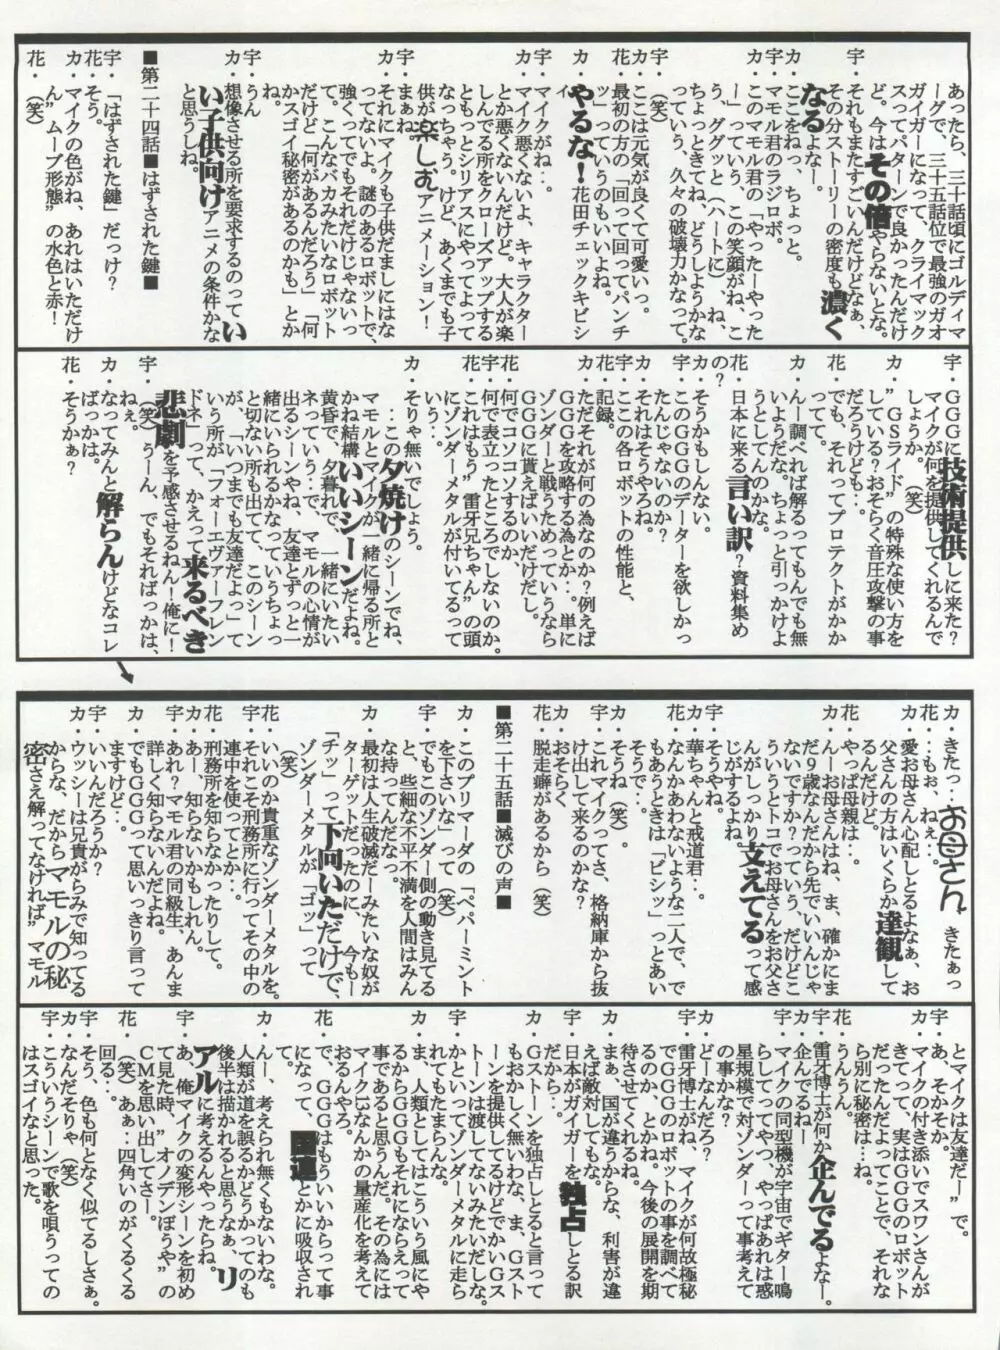 あったら、三十話頃にゴルディマ
ーグで、三十五話位で最強のガオ
ガイガーになって、クライマック
スってパターンで良かったんだけ
ど。今はその倍やらないとな。
宇・それもまたすごいんだけどなぁ、
その分ストーリーの密度も濃く
なるよなー。
カ・ここをねっ、ちょっと。
宇・マモル君のラジロボ。
カ・このマモル君の「やったーやった
ー」っていう、この笑顔がね、こ
う、ググッと(ハートに)、ね、
ちょっときてね、どうしようかな
っていう、久々の破壊力かなって。
宇・(笑)
カ・ここは元気が良くて可愛いっ。
花・最初の方の「回って回ってパンチ
ッ」っていうのもいいよね。
カ・やるな!花田チェックキビシ
イ
宇・マイクがね‥。
カ・マイク悪くないよ、キャラクター
とか悪くないんだけど。大人が楽
しんでる所をクローズアップする
ともっとシリアスにやってよって
なっちゃう。けど、あくまでも子
供が楽しむアニメーション!
宇・まぁね
カ・それにマイクも子供だましにはな
ってないよ。謎のあるロボットで、
強くってでもそれだけじゃないっ
て。こんなバカみたいなロボット
だけど「何があるんだろう」「何
かスゴイ秘密があるのかも」とか
ね。
宇・うん
カ・想像させる所を要求するのってい
い子供向けアニメの条件かな
と思うしね。
■第二十四話■はずされた鍵■
宇・「はずされた鍵」だっけ?
花・そう。
カ・マイクの色がね、あれはいただけ
ん”ムーブ形態”の水色と赤!
花・(笑)
宇・GGGに技術提供しに来た?
マイクが何を提供してくれるんで
しょうか。(笑)
カ・”GSライド”の特殊な使い方を
している?おそらく音圧攻撃の事
だろうけども‥。
花・でも、それってプロテクトがかか
ってて。
カ・んー調べれば解るってもんでも無
いようだな。ちょっと引っかけよ
うとしてんのかな。
花・日本に来る言い訳?資料集め
の?
カ・そうかもしんない。
宇・このGGGのデーターを欲しかっ
たんじゃないのか?
カ・それはそうやろね。
宇・ここの各ロボットの性能と、
花・記録。
カ・ただそれが何の為なのか?例えば
GGGを攻略する為とか‥単に
ゾンダーと戦うためっていうなら
GGGに貰えばいいだけだし。
花・何でコソコソするのか、
宇・何で表立ったところでしないのか。
花・これはもう”雷牙兄ちゃん”の頭
にゾンダーメタルが付いてるって
いう‥。
カ・そりゃ無いでしょう。
‥この夕焼けのシーンでね、
マモルとマイクが一緒に帰る所と
かね結構いいシーンだよね。
黄昏で、夕暮れで、一緒にいたい
ネっていう‥で、マモルの心情が
出るシーンやね、友達とずっと一
緒にいられるかなっていうちょっ
と切ない所も出てて、このシーン
が、「いつまでも友達だよっ」て
いう所が「フォーエヴァーフレン
ドネ」って、かえって来るべき
悲劇を予感させるねん!俺に!
宇・(笑)うーん、でもそればっかは、
ねぇ。
カ・なってみんと解らんけどなコレ
ばっかは。
花・そうかぁ?
カ・きたっ‥お母さん きたぁっ
花・‥もぉ、ねぇ‥。
カ・愛お母さん心配しとるよなぁ、お
父さんの方はいくらか達観して
るんだけど。
花・やっぱ母親は‥。
カ・んーお母さんはね、ま、確かにま
だ9歳なんだから先でいいんじゃ
ないですか?っていう、だけどこ
ういうとトコでお母さんをお父さ
んがしっかり支えてるって感
じがするよね。
宇・そうやね。
カ・華ちゃんと戒道君‥。
花・なんかあわないような二人で、で
もあうときは「ビシッ」っとあい
そうで‥。
カ・そうね(笑)。
宇・これマイクってさ、格納庫から抜
け出して来るのかな?
カ・おそらく
花・脱走癖があるから(笑)
■第二十五話■滅びの声■
カ・このプリマーダの「ペパーミント
を下さいな」って(笑)
宇・でもこのゾンダー側の動き見てる
と、些細な不平不満を人間はみん
な持ってんだなっ。
カ・最初は人生破滅だーみたいな奴が
ターゲットだったのに、今もー
「チッ」って下向いただけで、
ゾンダーメタルが「ゴッ」って
(笑)
花・いいのか貴重なゾンダーメタルを。
宇・それこそ刑務所に行ってその中の
連中を使ってとか‥。
花・刑務所を知らなかったりして。
カ・あー、知らないかもしれん。
宇・あれ?マモル君の同級生、あんま
詳しく知らないんだよね。
カ・でもGGGって思いっきり言って
ますけど‥。
宇・いいんだろうか?
カ・ウッシーは兄貴がらみで知ってる
からな、だからマモルの秘
密さえ解ってなければ”マモル
とマイクは友達だー”で。
宇・あ、そかそか。
カ・マイクの付き添いでスワンさんが
きてって、実はGGGのロボット
だったんだよってことで、それな
ら別に秘密は‥ね。
花・うんうん。
宇・雷牙博士が何か企んでるよなー。
カ・企んでるねー
宇・マイクの同型機が宇宙でギター鳴
らしてってやつ、やっぱあれは惑
星規模で対ゾンダーって事考えて
の事かな?
カ・どーなんだろ?
宇・雷牙博士がね、マイクが何故極秘
でGGGのロボットの事を調べて
るのか、とかね。今後の展開を期
待させてくれるね。
カ・まぁ、国が違うからな、利害が違
えば敵対してもな。
宇・日本がガイガーを独占しとる訳
カ・Gストーンを独占しとると言って
もおかしく無いわな、ま、Gスト
ーンを提供してるけどでかいGス
トーンは渡してないみたいだしな。
宇・かといってゾンダーメタルに走ら
れてもたまらんな。
カ・ま、人類としてはこういう風にや
るからGGGもそれにならえって
事であると思うんだ。その為には
マイクになんかの量産化を考えて
おるんやろ。
花・で、GGGはもういいからって事
になって、国連とかに吸収され
て。
カ・んー、考えられ無くもないわな。
人類が道を誤るかどうかってのも
後半は描かれると思うなぁ、リ
アルに考えるんやったらね。
宇・あ、俺マイクの変形シーンを初め
て見た時、”オノデンぼうや”の
CMを思い出してさー。
花・(笑)あぁ‥四角いのがくるくる
回る‥。
宇・そう、色も何となく似てるしさぁ。
カ・なんだそりゃ(笑)
宇・こういうシーンで歌を唄うっての
はスゴイなと思った。